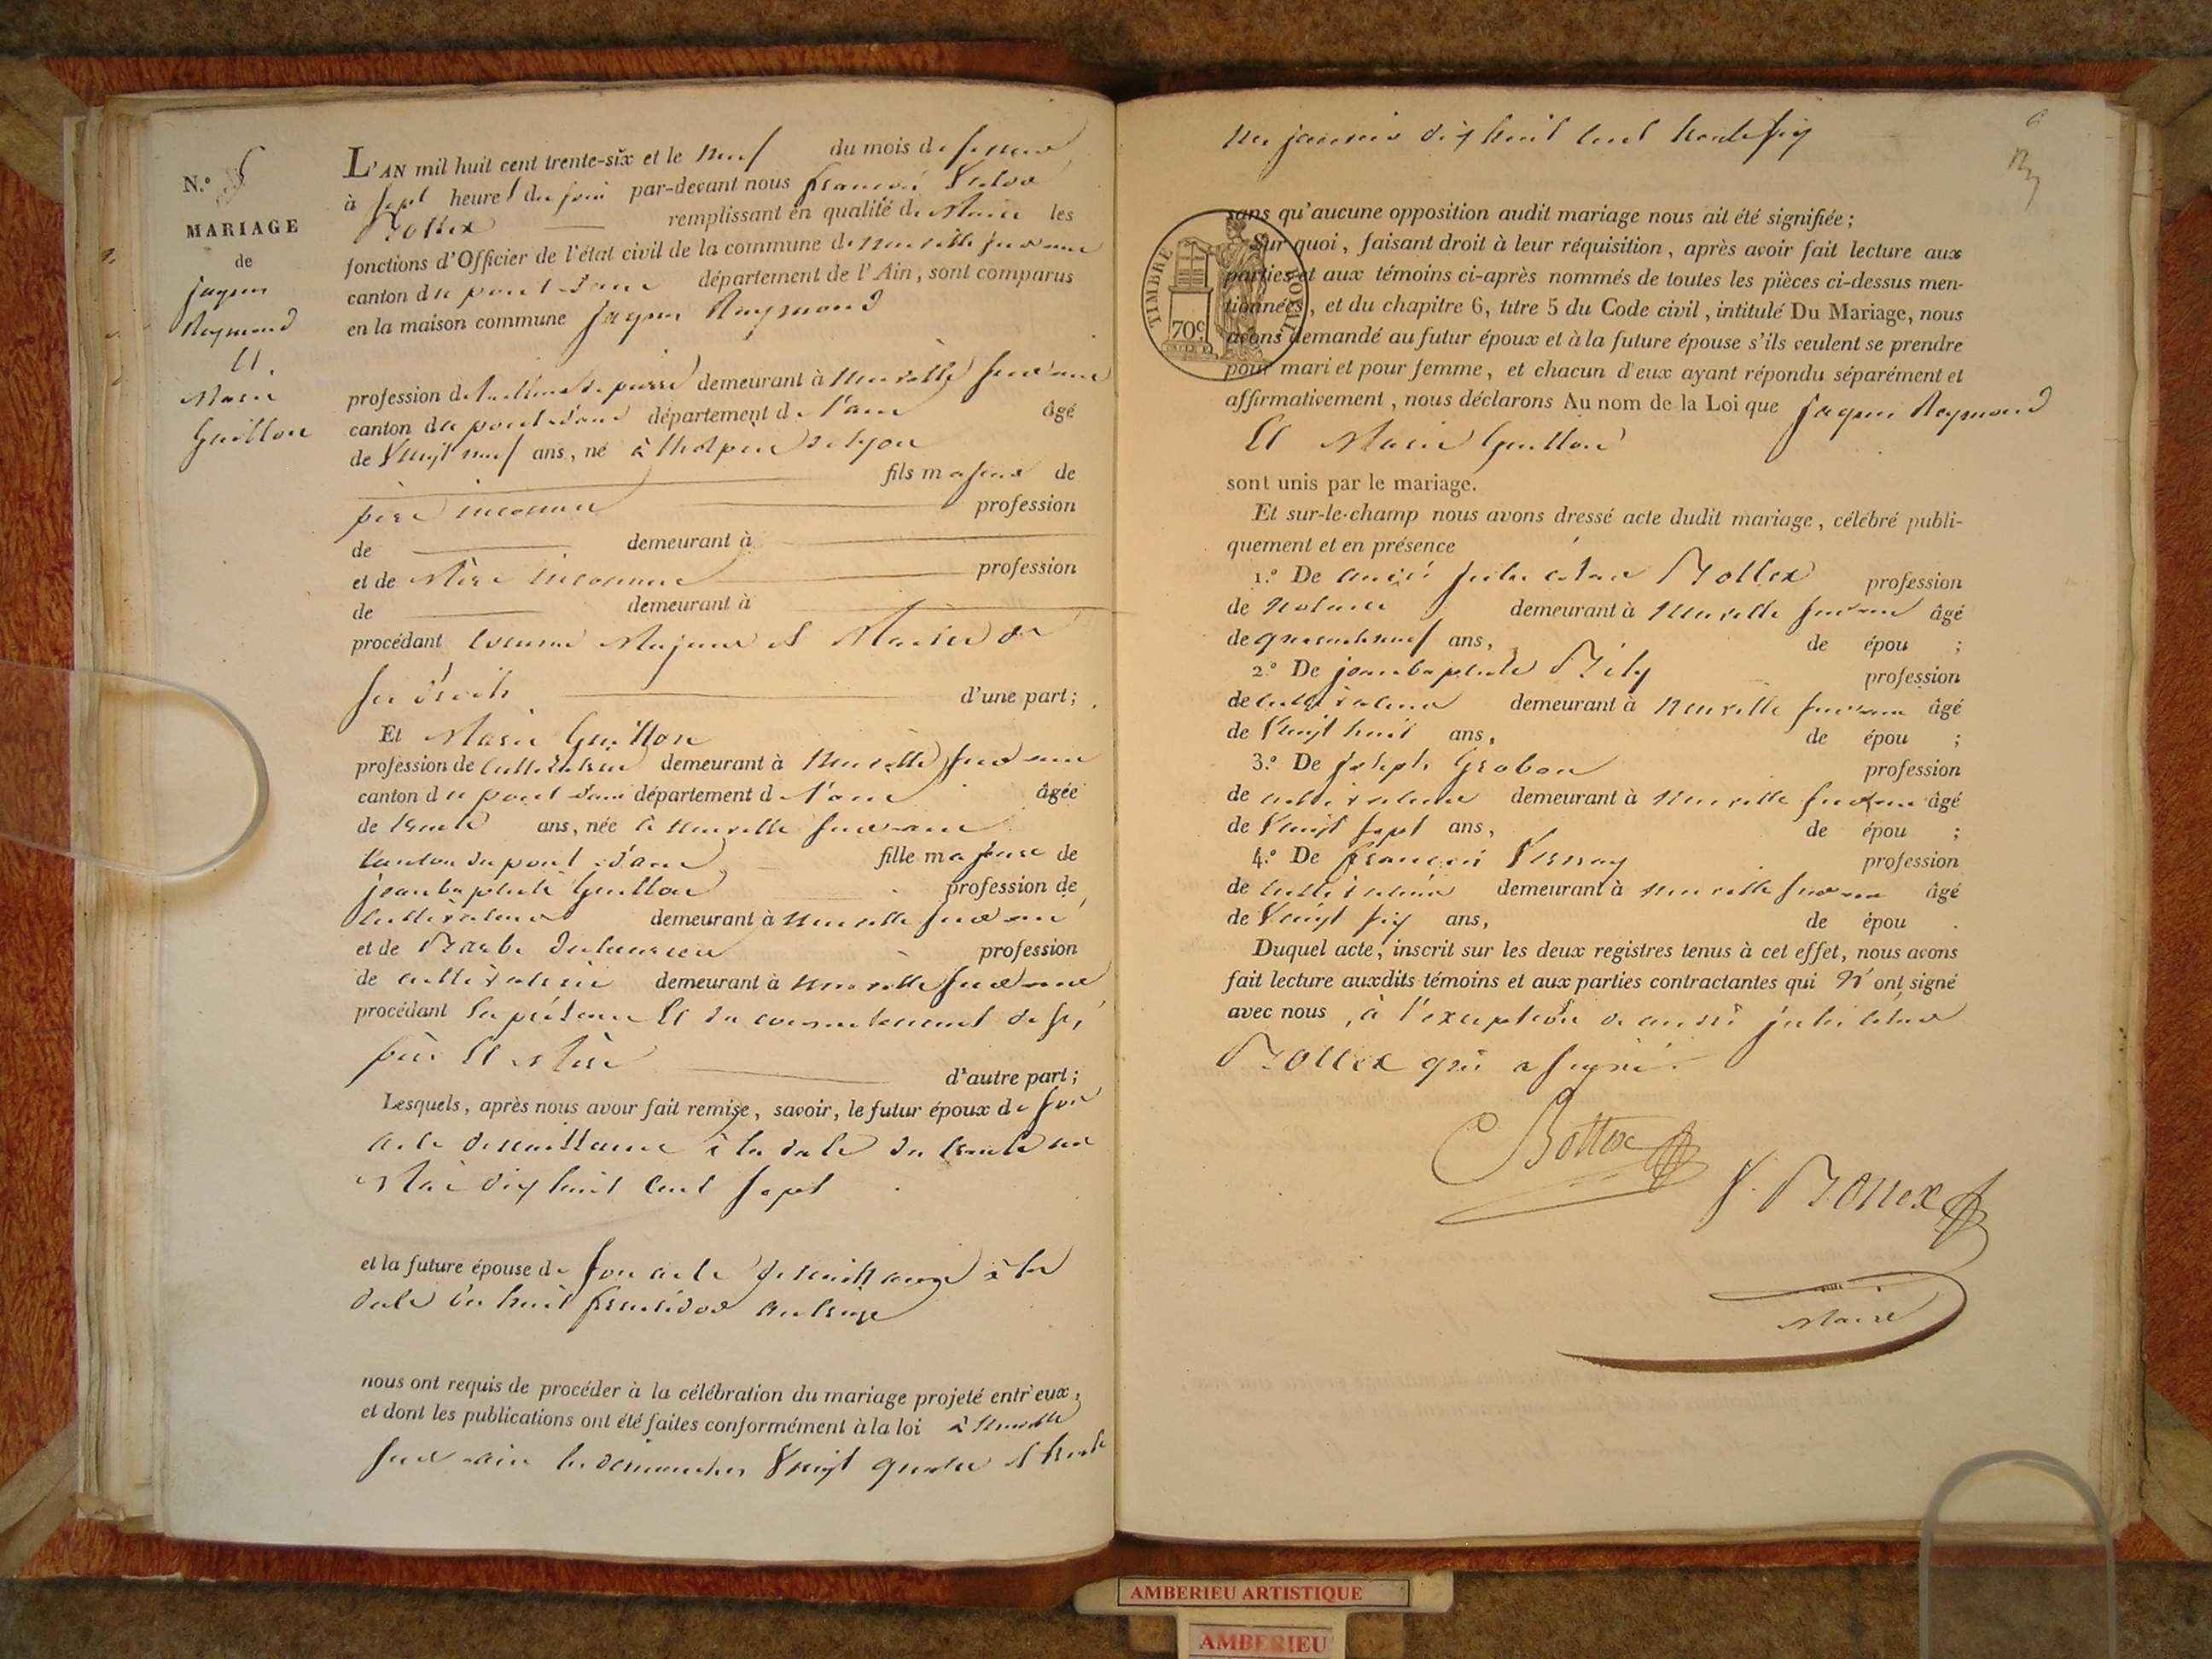 N.º 5
MARIAGE
de
jaques
Reymond
Et
Marie
Guillon
L'AN mil huit cent trente-six et le neuf du mois de fevrier
à sept heures du soir par-devant nous françois Victor
Bottex remplissant en qualité de Maire les
fonctions d'Officier de l'état civil de la commune de neuville sur ain
canton du pont d'ain département de l'Ain, sont comparus
en la maison commune jaques Reymond
profession de tailleur de pierre demeurant à neuville sur ain
canton du pont d'ain département de l'ain âgé
de Vingt neuf ans, né à lhospice de lyon
fils majeur de
père inconnu profession
de demeurant à
et de Mère inconnue profession
de demeurant à
procédant comme Majeur et Maitre de
ses droits d'une part;
Et Marie Guillon
profession de cultivatrice demeurant à neuville sur ain
canton du pont d'ain département de l'ain âgée
de trente ans, née à neuville sur ain
canton du pont d'ain fille majeure de
jean baptiste Guillon profession de
cultivateur demeurant à neuville sur ain
et de Barbe profession
de cultivatrice demeurant à neuville sur ain
procédant en présence Et du consentement de ses
père Et Mère d'autre part;
Lesquels, après nous avoir fait remise, savoir, le futur époux de son
acte de naissance à la date du trente un
Mai dix huit cent sept
et la future épouse de son acte de naissance à la
date du huit fructidor an treize
nous ont requis de procéder à la célébration du mariage projeté entr'eux,
et dont les publications ont été faites conformément à la loi à neuville
sur ain les dimanches Vingt quatre et trente
un janvier dix huit cent trente six
6
sans qu'aucune opposition audit mariage nous ait été signifiée;
Sur quoi, faisant droit à leur réquisition, après avoir fait lecture aux
parties et aux témoins ci-après nommés de toutes les pièces ci-dessus men-
tionnées, et du chapitre 6, titre 5 du Code civil, intitulé Du Mariage, nous
avons demandé au futur époux et à la future épouse s'ils veulent se prendre
pour mari et pour femme, et chacun d'eux ayant répondu séparément et
affirmativement, nous déclarons Au nom de la Loi que jaques Reymond
Et Marie Guillon
sont unis par le mariage.
Et sur-le-champ nous avons dressé acte dudit mariage, célébré publi-
quement et en présence
1.º De andré jules césar Bottex profession
de notaire demeurant à neuville sur ain âgé
de quarante neuf ans, de épou ;
2.º De jean baptiste profession
de cultivateur demeurant à neuville sur ain âgé
de Vingt huit ans, de épou ;
3.º De joseph Grobon profession
de cultivateur demeurant à neuville sur ain âgé
de Vingt sept ans, de épou ;
4.º De françois Vernay profession
de cultivateur demeurant à neuville sur ain âgé
de Vingt six ans, de épou .
Duquel acte, inscrit sur les deux registres tenus à cet effet, nous avons
fait lecture auxdits témoins et aux parties contractantes qui n'ont signé
avec nous, à l'exception de andré jules césar
Bottex qui a signé.
C Bottex
V. Bottex
Maire
TIMBRE ROYAL
70c
AMBERIEU ARTISTIQUE
AMBERIEU